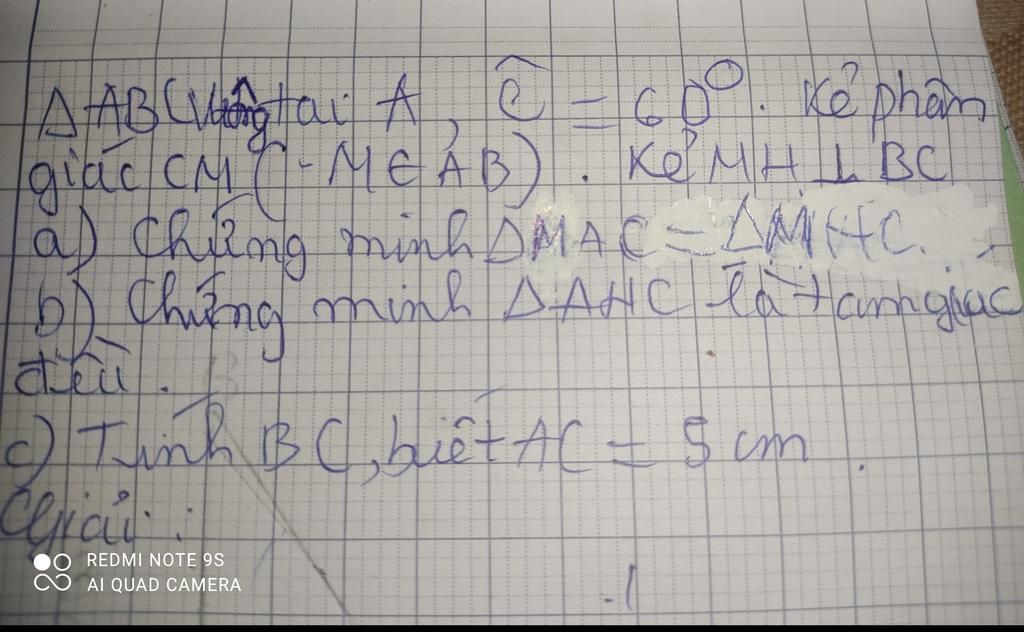 Δ ABC vuông tại A, Ĉ = 60°. Kẻ phân
giác CM (M ∈ AB). Kẻ MH ⊥ BC
a) Chứng minh Δ MAC = Δ MHC.
b) Chứng minh Δ AHC là tam giác
đều.
c) Tính BC, biết AC = 5 cm.
Giải:
REDMI NOTE 9S
AI QUAD CAMERA